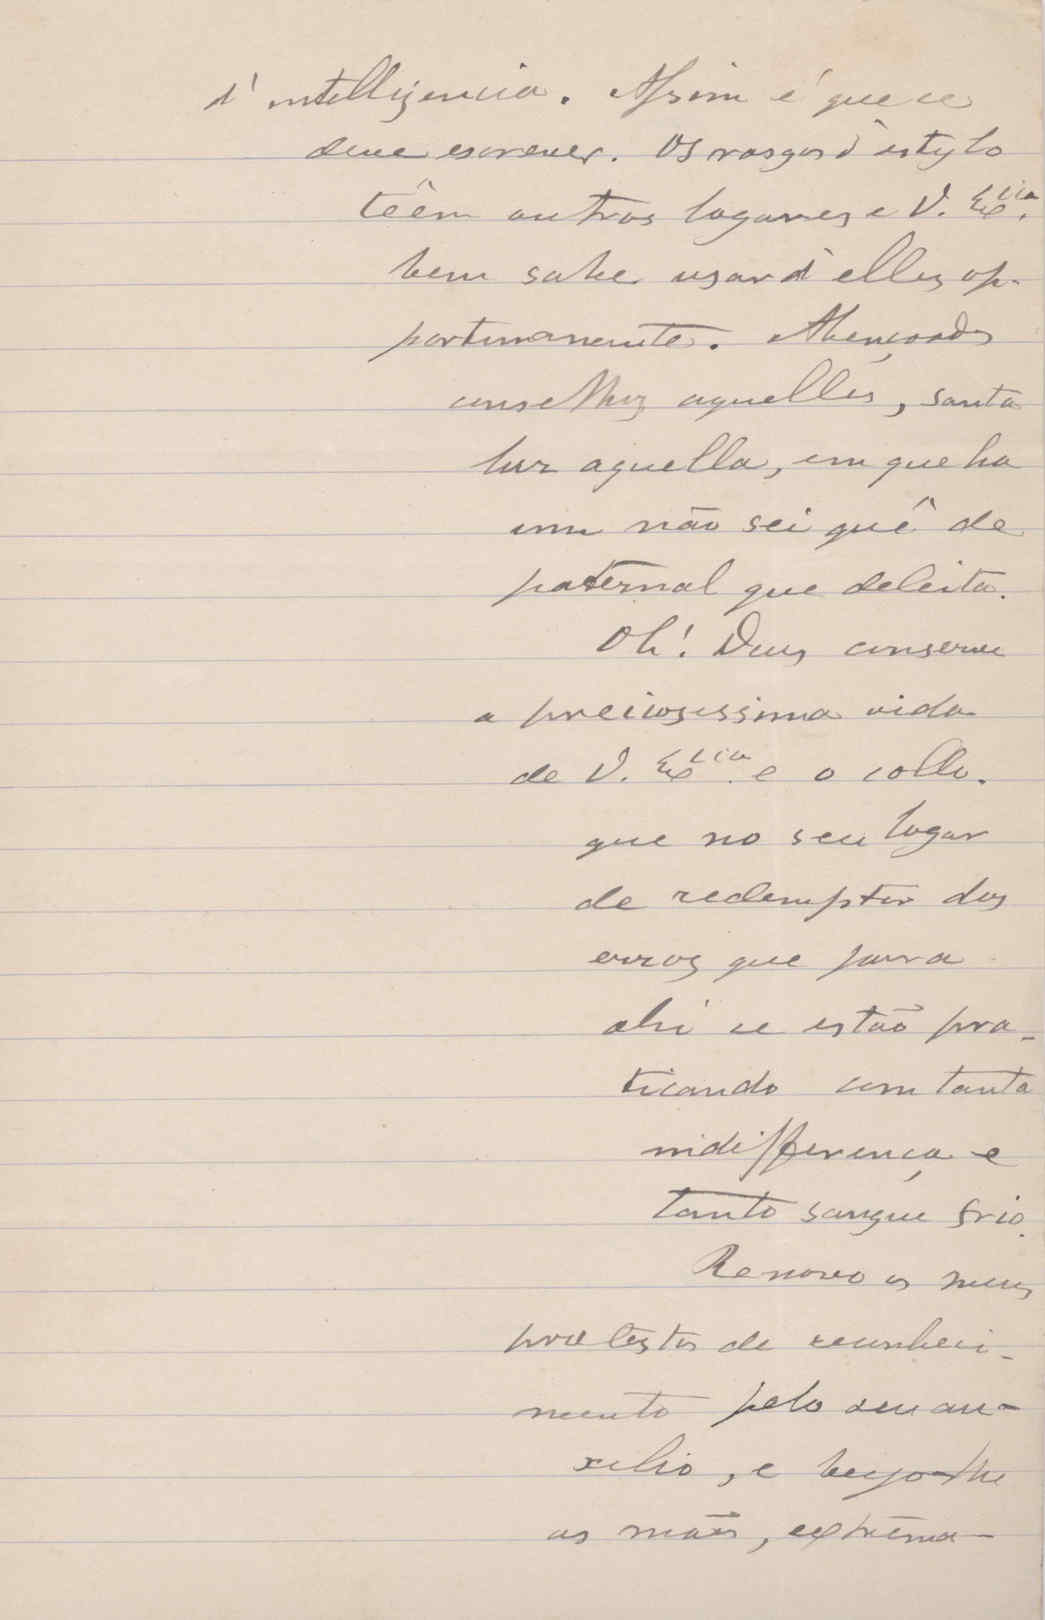 d'intelligencia. Assim é que se
deve escrever. Os rasgos d'estylo
têem outros logares e V. Ex.cia
bem sabe usar d'elles op-
portunamente. Abençoados
conselhos aquelles, santa
luz aquella, em que ha
um não sei quê de
paternal que deleita.
Oh! Deus conserve
a preciosissima vida
de V. Ex.cia e o collo-
que no seu logar
de redemptor dos
erros que para
ahi se estão pra-
ticando com tanta
indifferença e
tanto sangue frio.
Renovo os meus
protestos de reconheci-
mento pelo seu au-
xilio, e beijo-lhe
as mãos, extrema-